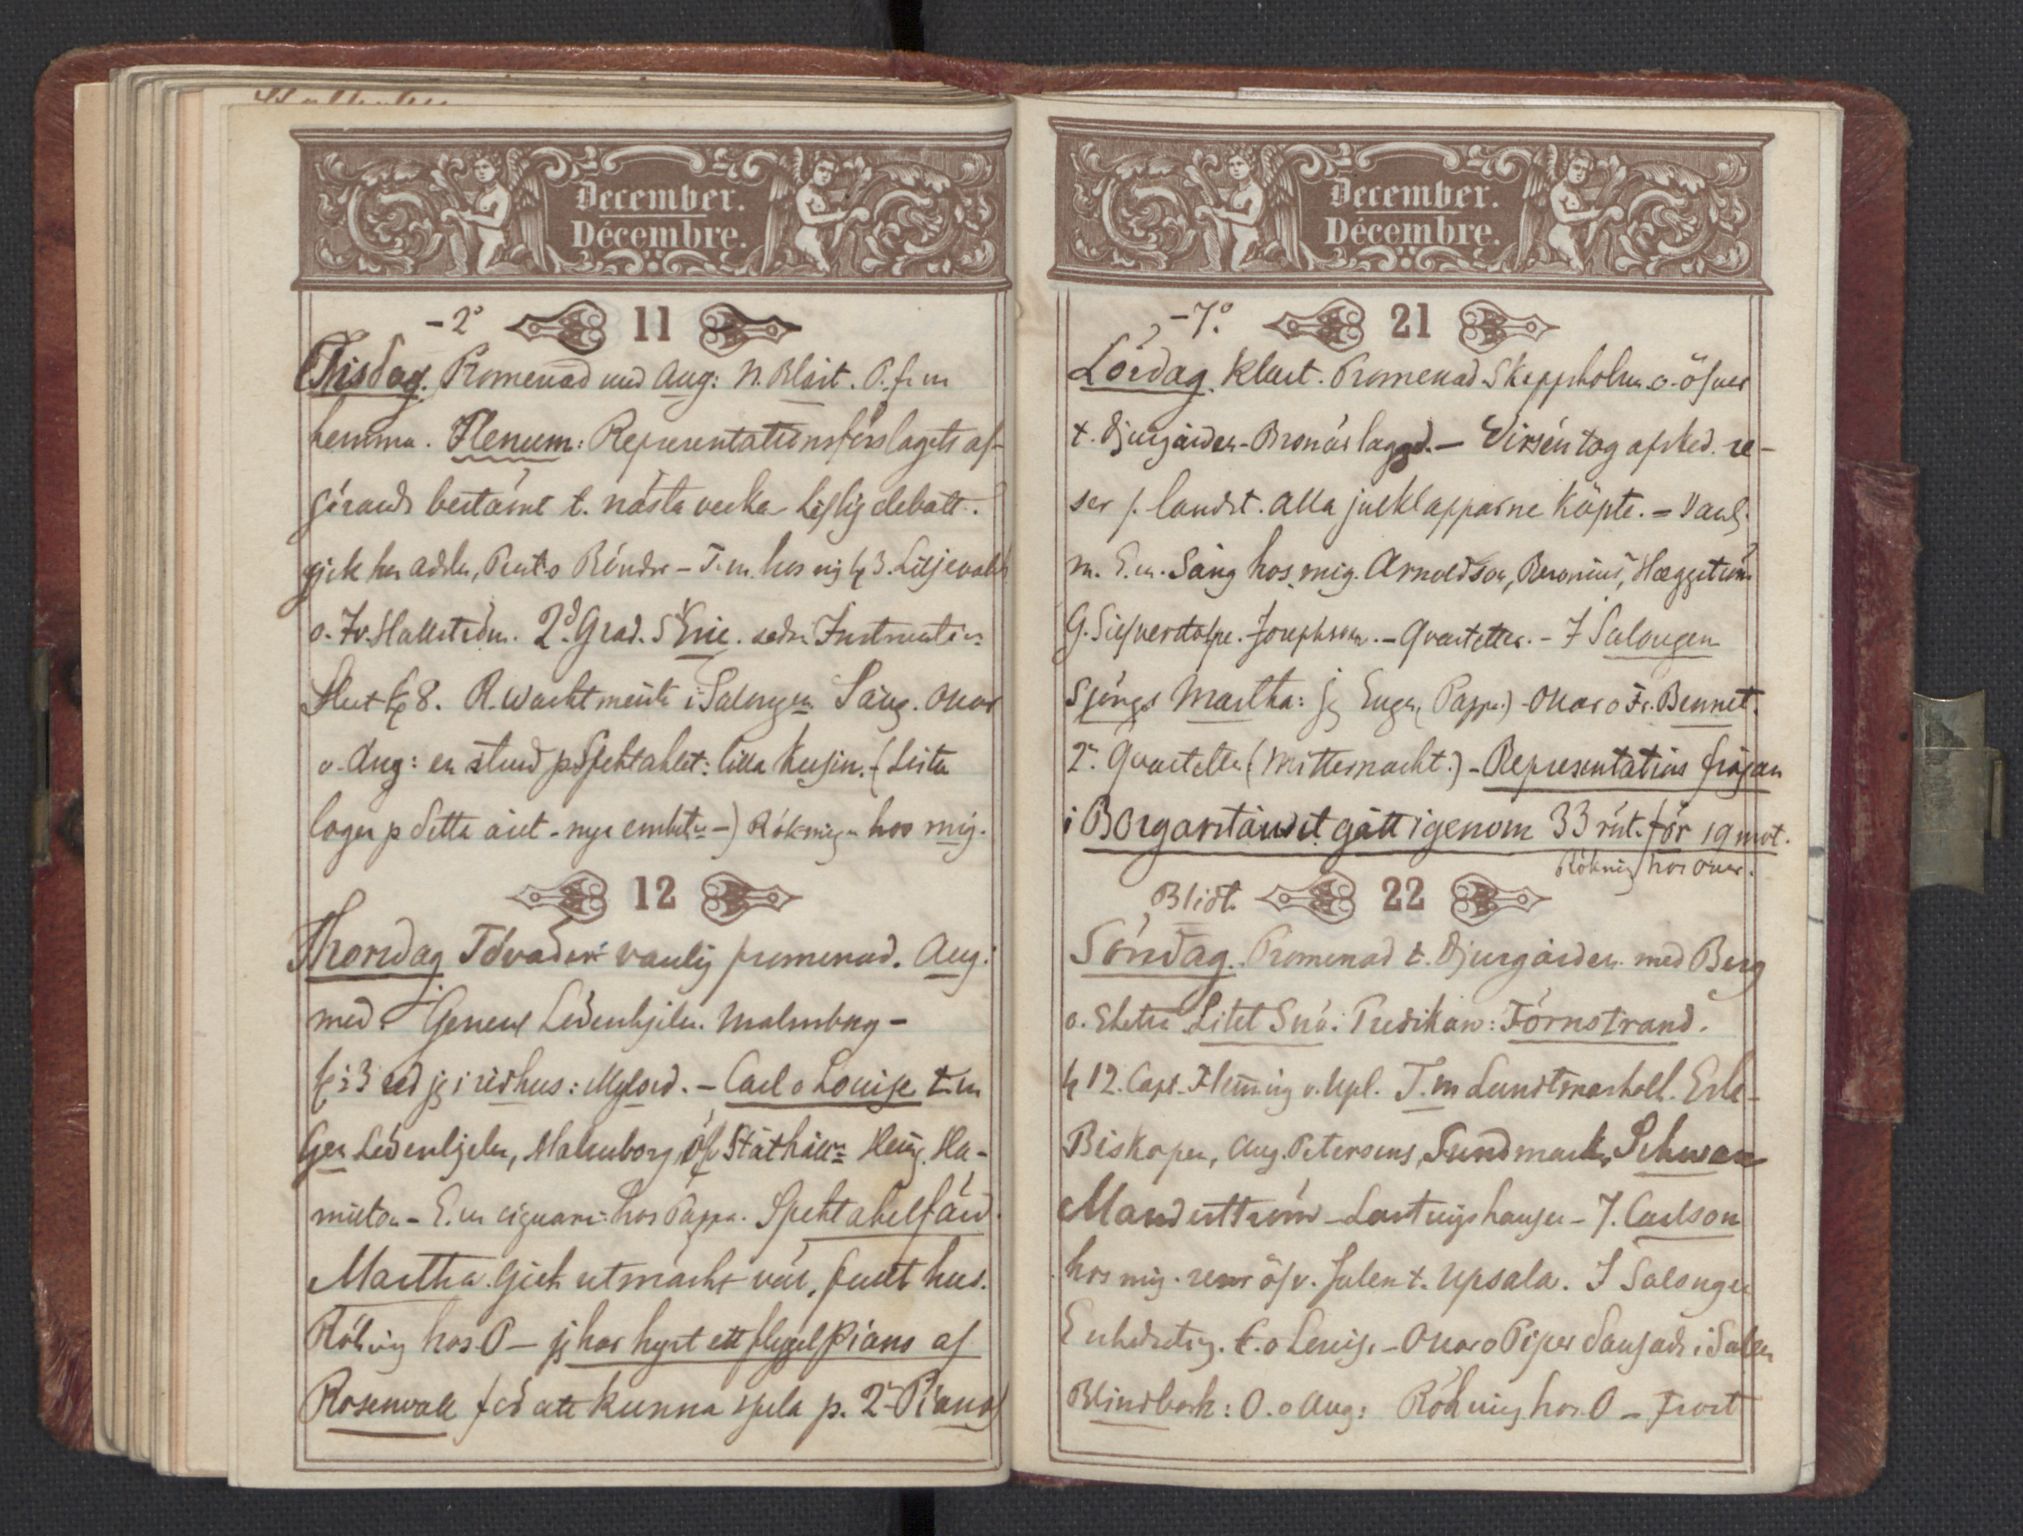 December.
Décembre.
-2° 11
Thisdag. Promenad med Aug: N. Blåst. P. fr m
hemma. Plenum: Representationsförslagets af-
görande bestämt t. nästa vecka Liflig debatt.
gick hos Adeln, Prest o Bönder - T. m. hos mig
o. Fr. Hallström. 2d Grad. St Eric. sedn Instruction
Slut kl 8. R. Wachtmeister i Salongen Sång. Oscar
o. Aug: en stund på Spektaklet: lilla kusin. (Sista
logen p detta året - nya embetsm -) Rökning hos mig.
12
Thorsdag Töväder vanlig promenad. Aug:
med. General Löwenhjelm. Malmborg -
kl: 3 red jg i ridhus: Mylord. - Carl o Louise t. m
Gen Löwenhjelm, Malmborg, öf Ståthålln Hening Ha-
milton - E. m cigarr: hos Pappa. Spektakelfärd.
Martha. Gick utmärkt väl, fullt hus.
Rökning hos O - jg har hyrt ett flygel Piano af
Rosenwall för att kunna spela p. 2 Pianos
December.
Décembre.
-7° 21
Lördag. Klart. Promenad Skeppsholm o. öfver
t. Djurgården - Bron är laggd. - Virsén tog afsked. re-
ser p. landst. Alla julklapparne köpte. -
m. E. m. Sång hos mig. Arnoldson, Beronius, Hæggström
G. Silfverstolpe. Josephson. - Qvartetter. - I Salongen
Sjöngs Martha: jg Eugen, Pappa) - Oscar o Fr. Bennet.
2 Qvartetter (Mitternacht.) - Representations frågan
i Borgarståndet gått igenom 33 röst. för 19 mot.
Rökning hos Oscar.
Blidt. 22
Söndag. Promenad t. Djurgården med Berg
o. Litet Snö. Predikan: Förnstrand.
kl 12. Capt. Fleming o. Upl. T. m Landtmarskalk. Erke-
Biskopen, Aug. Petersens, Sundmark, Schwan
Manderström - Lantingshausen - F. Carlson
hos mig. reser öfv. Julen t. Upsala. I Salongen
Enkedrotng. C. o Louise - Oscar o Piper dansade i Salen
Blindbock: O. o Aug: Rökning hos O - Frost